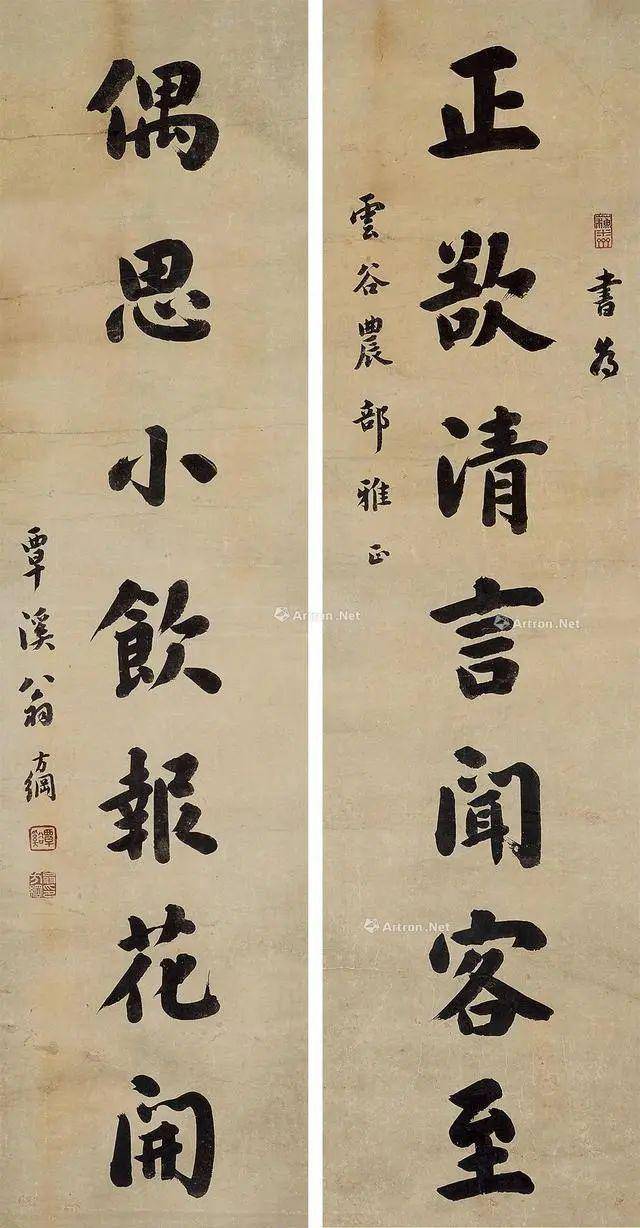 書為
正欲清言聞客至
雲谷農部雅正
偶思小飲報花開
覃溪翁方綱
Artron.Net
Artron.Net
Artron.Net